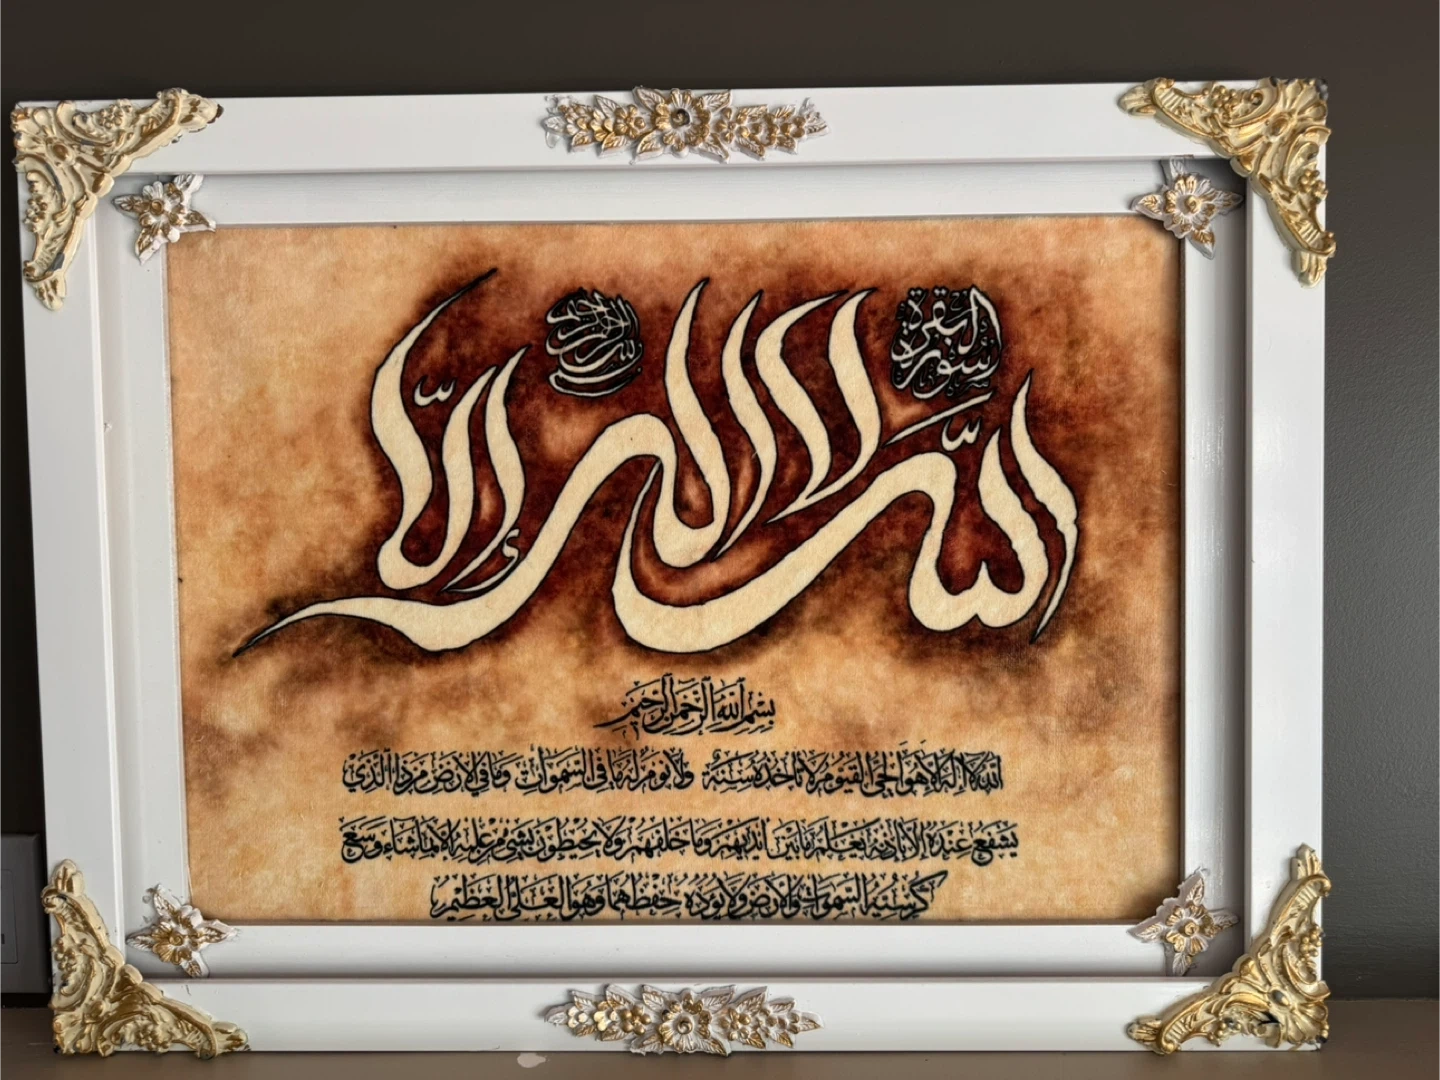 سورة البقرة
بسم الله الرحمن الرحيم
الله لا إله إلا
بِسْمِ اللهِ الرَّحْمٰنِ الرَّحِيْمِ
اللهُ لَا إِلٰهَ إِلَّا هُوَ الْحَيُّ الْقَيُّومُ لَا تَأْخُذُهُ سِنَةٌ وَلَا نَوْمٌ لَهُ مَا فِي السَّمٰوَاتِ وَمَا فِي الْأَرْضِ مَنْ ذَا الَّذِيْ
يَشْفَعُ عِنْدَهُ إِلَّا بِإِذْنِهِ يَعْلَمُ مَا بَيْنَ أَيْدِيْهِمْ وَمَا خَلْفَهُمْ وَلَا يُحِيْطُوْنَ بِشَيْءٍ مِنْ عِلْمِهِ إِلَّا بِمَا شَاءَ وَسِعَ
كُرْسِيُّهُ السَّمٰوَاتِ وَالْأَرْضَ وَلَا يَؤُدُهُ حِفْظُهُمَا وَهُوَ الْعَلِيُّ الْعَظِيْمُ